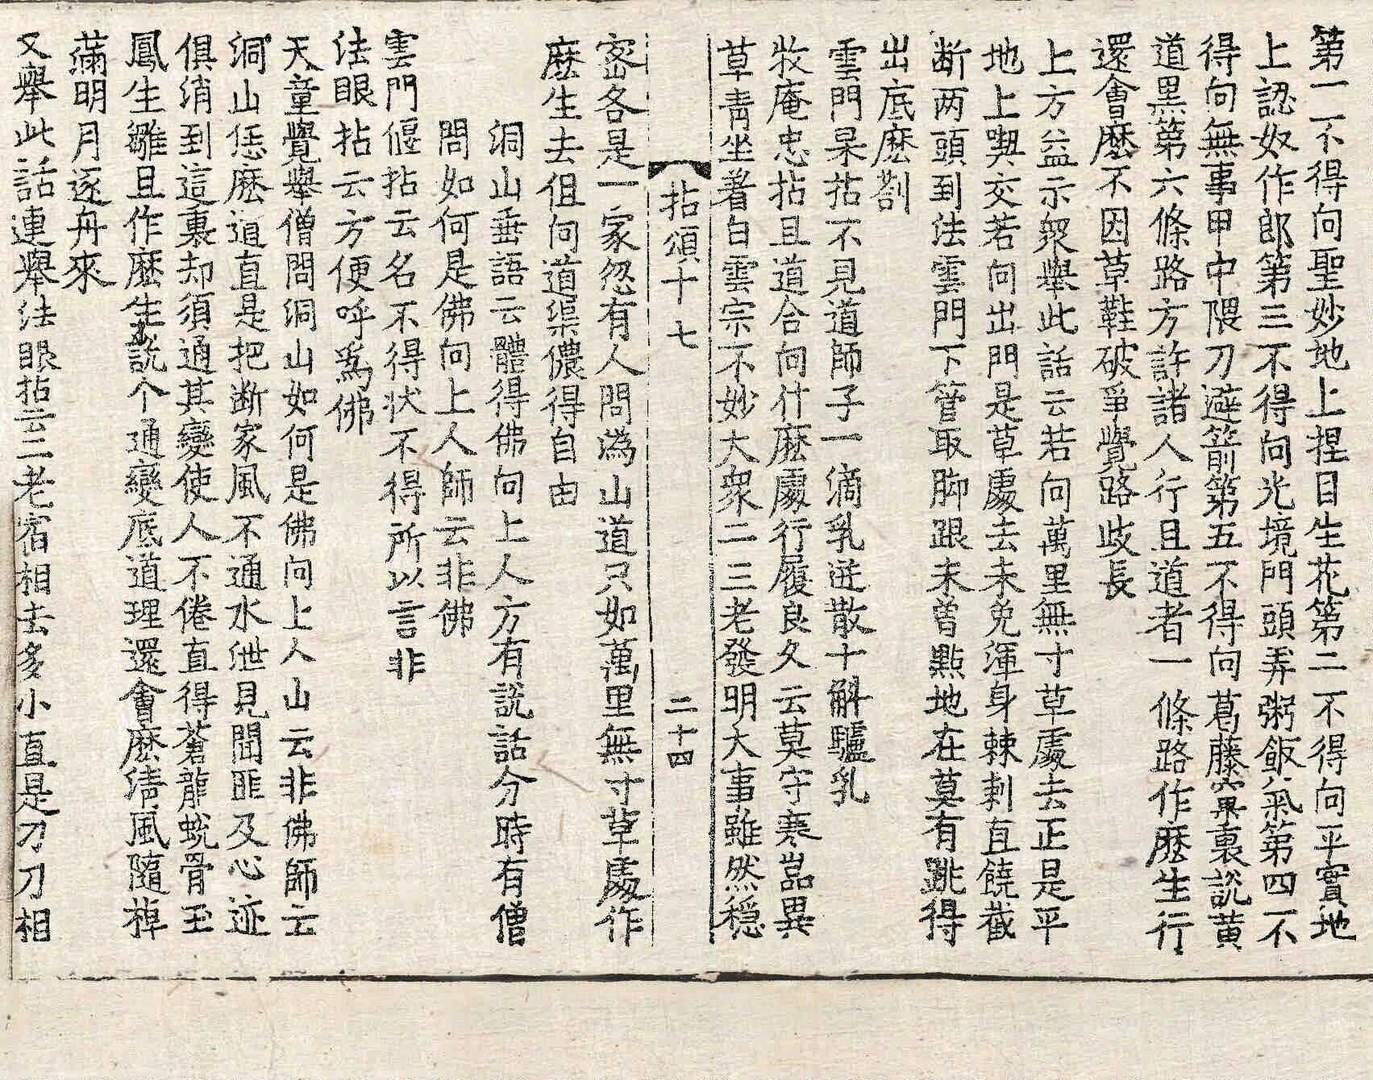 第一不得向聖妙地上捏目生花第二不得向平實地
上認奴作郎第三不得向光境門頭弄粥飯氣第四不
得向無事甲中隈刀避箭第五不得向葛藤窠裏說黃
道黑第六條路方許諸人行且道者一條路作麽生行
還會麽不因草鞋破爭覺路歧長
上方益示衆舉此話云若向萬里無寸草處去正是平
地上喫交若向出門是草處去未免渾身棘刺直饒截
断两頭到法雲門下管取脚跟未曾點地在莫有跳得
出底麽劄
雲門杲拈不見道師子一滴乳迸散十斛驢乳
牧庵忠拈且道合向什麽處行履良久云莫守寒嵓異
草青坐著白雲宗不妙大衆二三老發明大事雖然穩
拈頌十七 二十四
密各是一家忽有人問潙山道只如萬里無寸草處作
麽生去但向道渠儂得自由
洞山垂語云體得佛向上人方有說話分時有僧
問如何是佛向上人師云非佛
雲門偃拈云名不得状不得所以言非
法眼拈云方便呼爲佛
天童覺舉僧問洞山如何是佛向上人山云非佛師云
洞山恁麽道直是把断家風不通水泄見聞匪及心迹
俱消到這裏却須通其變使人不倦直得蒼龍蛻骨玉
鳳生雛且作麽生說个通變底道理還會麽清風隨棹
滿明月逐舟來
又舉此話連舉法眼拈云二老宿相去多小直是刀刀相